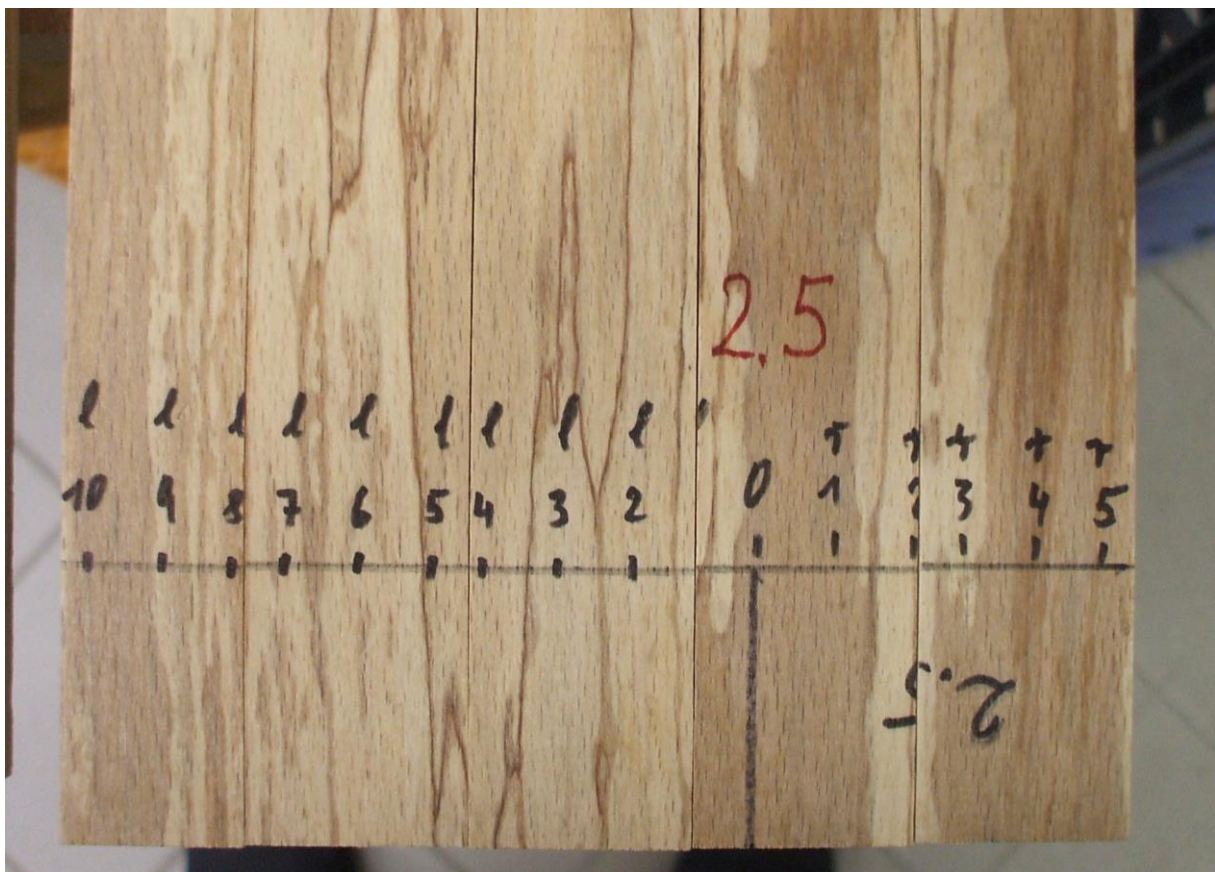 2.5
l l l l l l l l l + + + + +
10 9 8 7 6 5 4 3 2 0 1 2 3 4 5
2.5